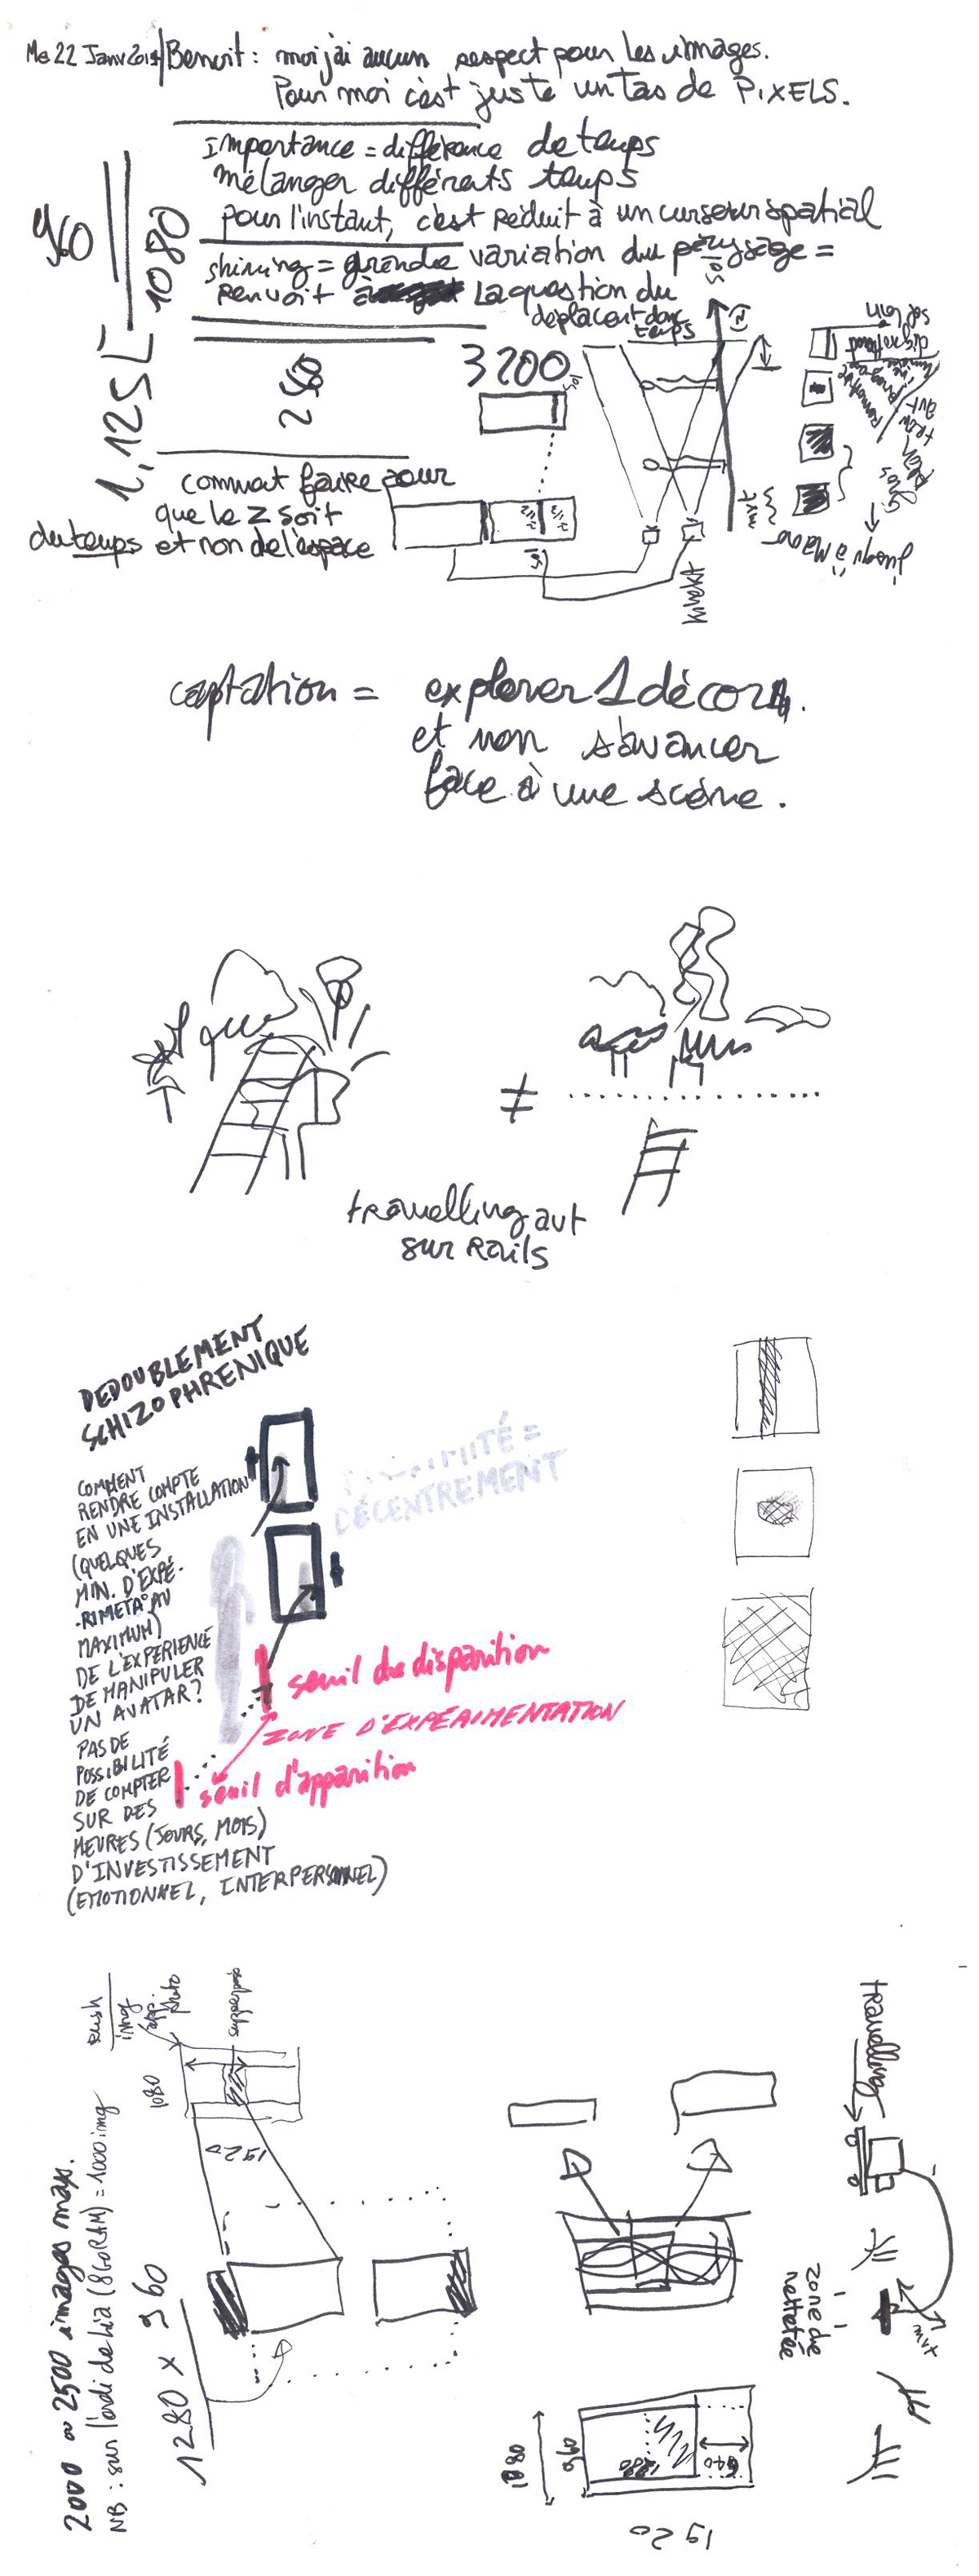 Me 22 Janv 2014 / Benoit : moi j'ai aucun respect pour les images.
Pour moi c'est juste un tas de PIXELS.
importance = différence de temps
mélanger différents temps
pour l'instant, c'est réduit à un curseur spatial
shining = grande variation du paysage =
renvoit à la question du
déplacent dans
temps
960
1080
1,125
3200
comment faire pour
que le z soit
du temps et non de l'espace
Kinect
jusqu'à Mano
captation = explorer 1 décor.
et non s'avancer
face à une scène.
≠
travelling avt
sur rails
DEDOUBLEMENT
SCHIZOPHRENIQUE
DÉCENTREMENT
COMMENT
RENDRE COMPTE
EN UNE INSTALLATION
(QUELQUES
MIN. D'EXPÉ-
RIMETA° AU
MAXIMUM)
DE L'EXPERIENCE
DE MANIPULER
UN AVATAR?
PAS DE
POSSIBILITÉ
DE COMPTER
SUR DES
HEURES (JOURS, MOIS)
D'INVESTISSEMENT
(EMOTIONNEL, INTERPERSONNEL)
seuil de disparition
ZONE D'EXPÉRIMENTATION
seuil d'apparition
Rush
img
app.
photo
1080
1920
2000 ou 2500 images max.
NB : sur l'ordi de Lia (8 Go RAM) = 1000 img
1280 x 960
travelling
zone de
netteté
1080
960
1280
640
1920